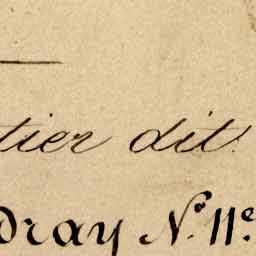 tier dit
dray N.° 11.e